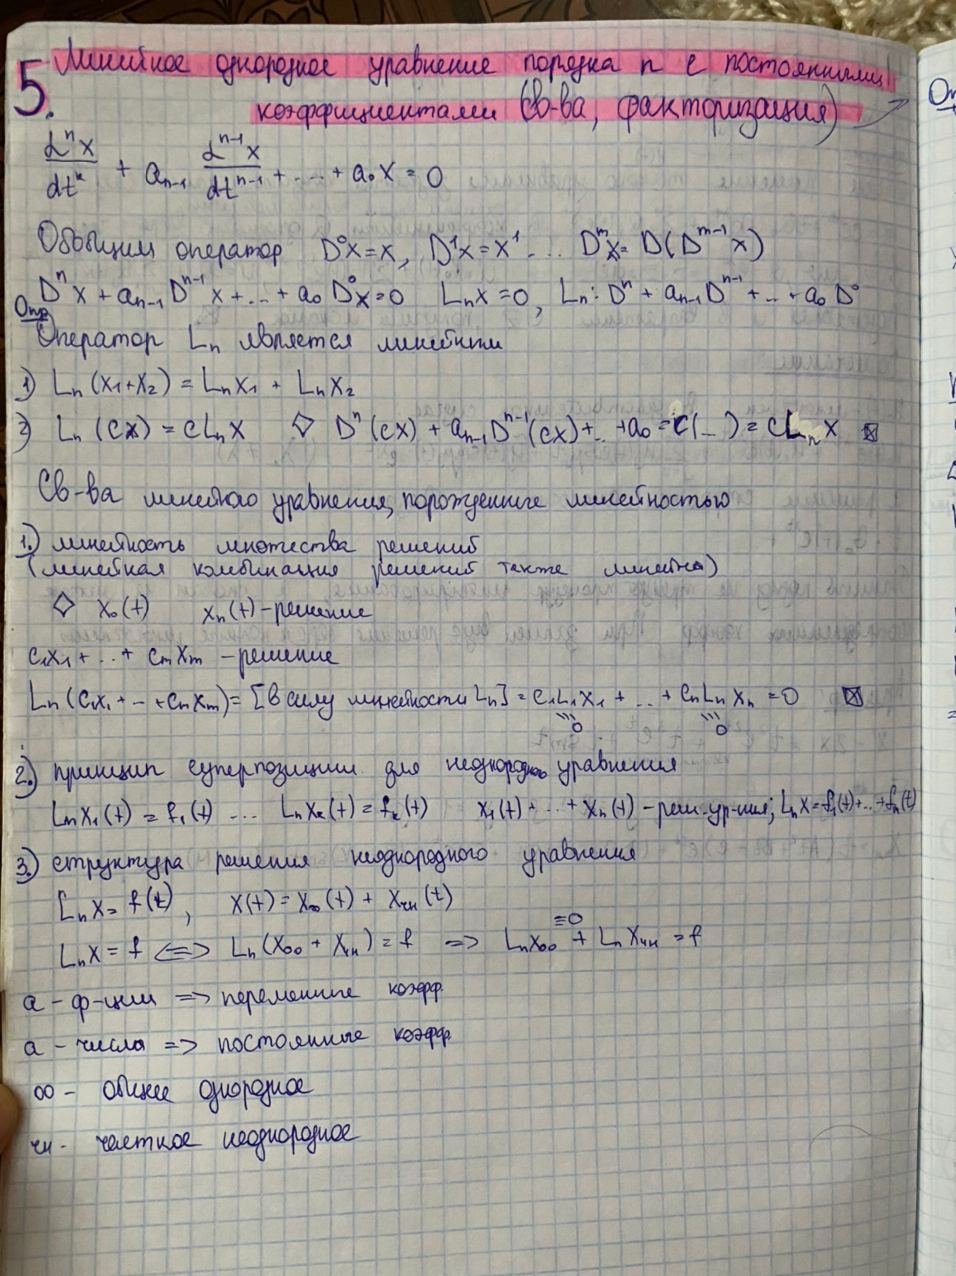 5. Линейное однородное уравнение порядка n с постоянными
коэффициентами (Св-ва, факторизация)
dⁿx/dtⁿ + aₙ₋₁ dⁿ⁻¹x/dtⁿ⁻¹ + ... + a₀x = 0
Обобщим оператор D⁰x=x, D¹x=x¹ ... Dᵐx = D(Dᵐ⁻¹x)
Dⁿx + aₙ₋₁Dⁿ⁻¹x + ... + a₀D⁰x = 0 Lₙx=0, Lₙ: Dⁿ + aₙ₋₁Dⁿ⁻¹ + ... + a₀D⁰
Опр
Оператор Lₙ является линейным
1) Lₙ(x₁+x₂) = Lₙx₁ + Lₙx₂
2) Lₙ(cx) = cLₙx ◊ Dⁿ(cx) + aₙ₋₁Dⁿ⁻¹(cx) + ... + a₀ = c(...) = cLₙx ⊠
Св-ва линейного уравнения, порожденные линейностью
1.) линейность множества решений
(линейная комбинация решений также линейна)
◊ x₀(t) xₙ(t) - решение
c₁x₁ + ... + cₘxₘ - решение
Lₙ(c₁x₁ + ... + cₙxₘ) = [в силу линейности Lₙ] = c₁L₁x₁ + ... + cₙLₙxₙ = 0 ⊠
0 0
2.) принцип суперпозиции для неоднородного уравнения
Lₙx₁(t) = f₁(t) ... Lₙxₖ(t) = fₖ(t) x₁(t) + ... + xₙ(t) - реш. ур-ния; Lₙx = f₁(t) + ... + fₙ(t)
3.) структура решения неоднородного уравнения
Lₙx = f(t), x(t) = xₒₒ(t) + xчн(t)
Lₙx = f <=> Lₙ(xₒₒ + xчн) = f => Lₙxₒₒ + Lₙxчн = f
≡0
a - ф-ции => переменные коэфф.
a - числа => постоянные коэфф.
оо - общее однородное
чн - частное неоднородное
Оп